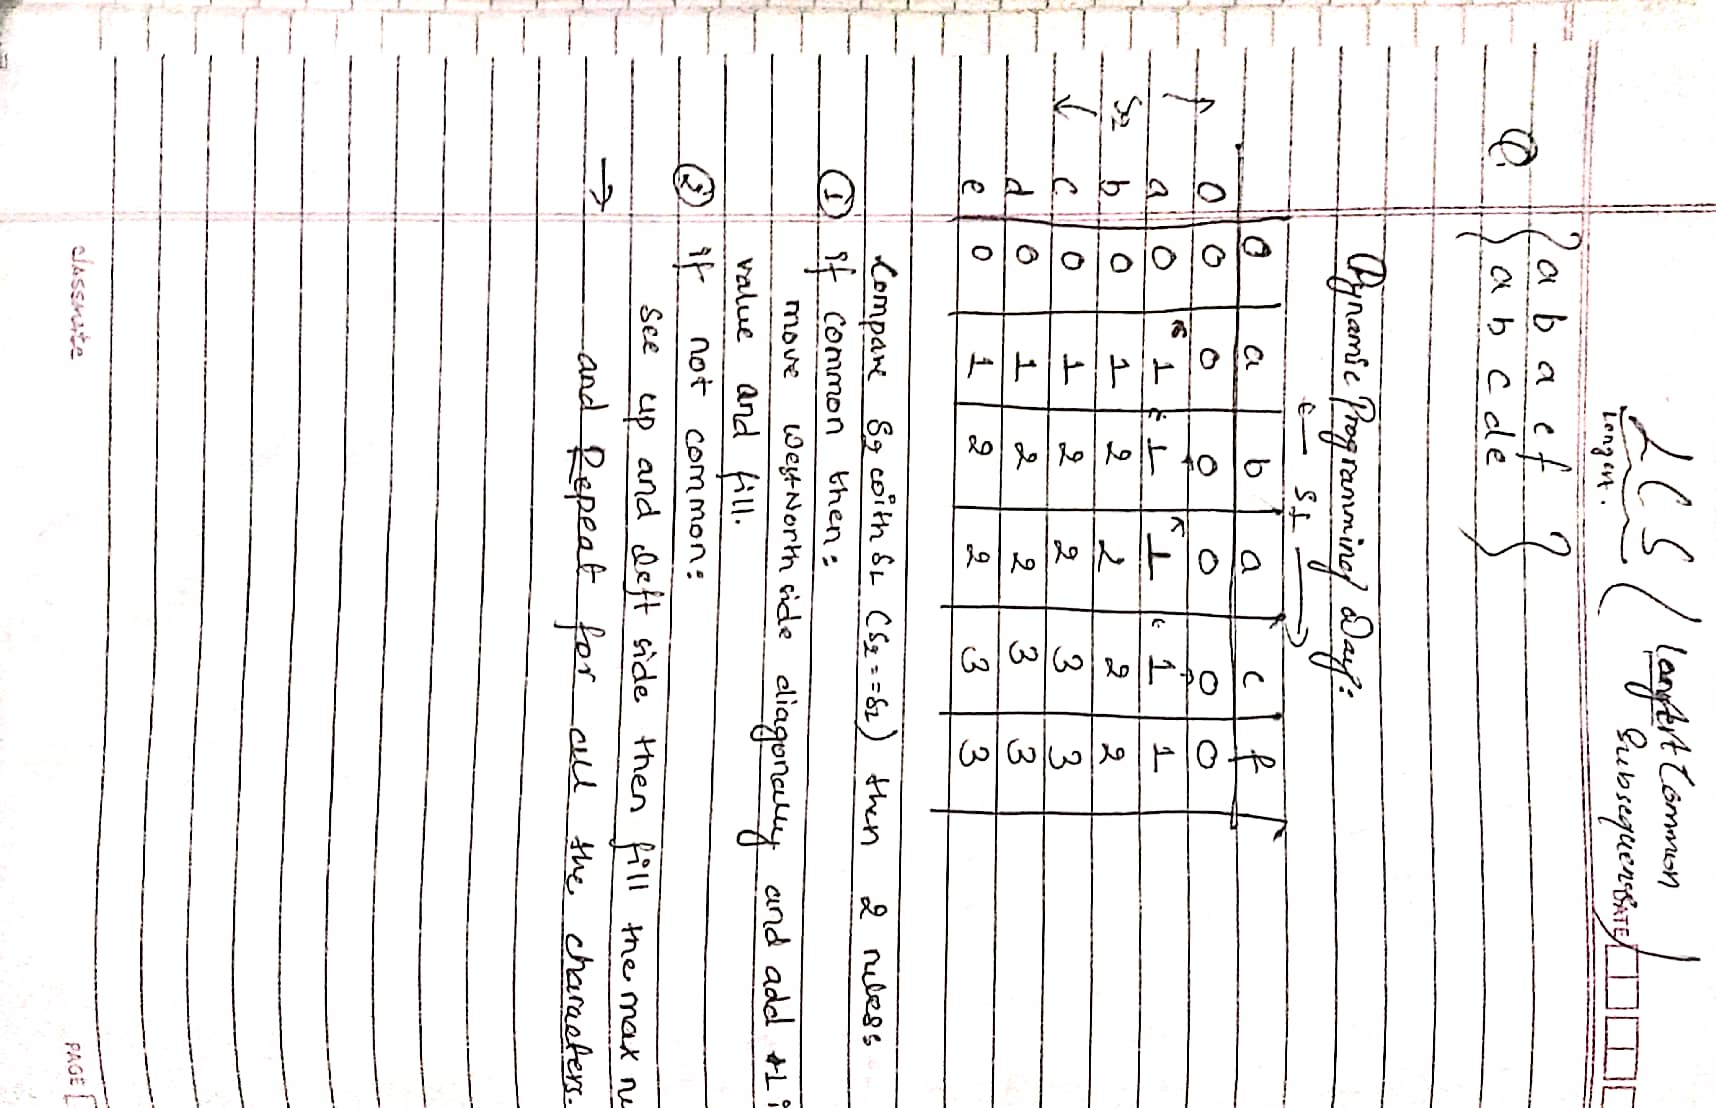 LCS (Longest Common
Longest.
Subsequence)
DATE
Q. { a b a c f }
{ a b c d e }
Dynamic Programming Way:
← S1 →
0 a b a c f
0 0 0 0 0 0 0
a 0 1 1 1 1 1
↑ S2 ↓
b 0 1 2 2 2 2
c 0 1 2 2 3 3
d 0 1 2 2 3 3
e 0 1 2 2 3 3
Compare S2 with S1 (S2==S1) then 2 rules
① If common then:
move West-North side diagonally and add +1
value and fill.
② If not common:
see up and left side then fill the max
→ and Repeat for all the characters.
classmate
PAGE